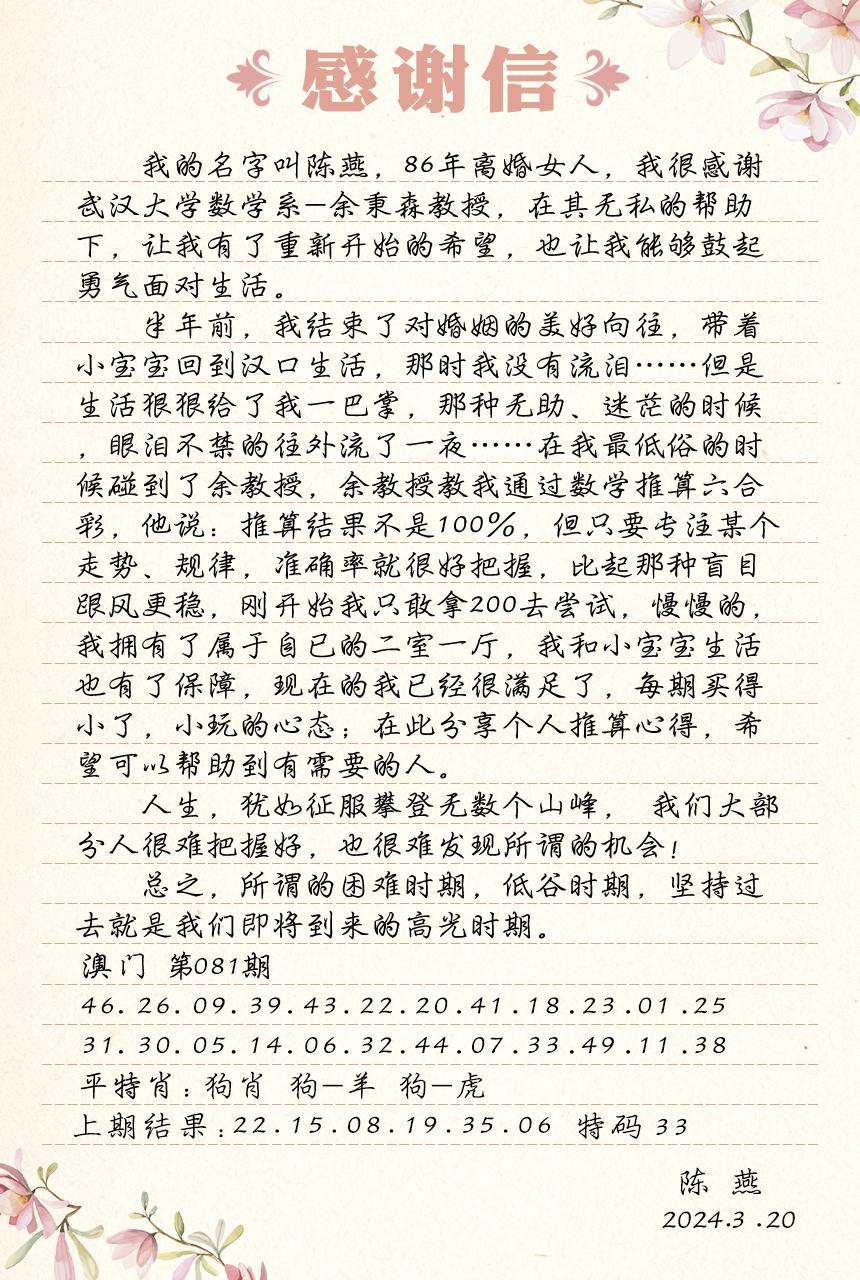 感谢信
我的名字叫陈燕，86年离婚女人，我很感谢
武汉大学数学系—余秉森教授，在其无私的帮助
下，让我有了重新开始的希望，也让我能够鼓起
勇气面对生活。
半年前，我结束了对婚姻的美好向往，带着
小宝宝回到汉口生活，那时我没有流泪……但是
生活狠狠给了我一巴掌，那种无助、迷茫的时候
，眼泪不禁的往外流了一夜……在我最低俗的时
候碰到了余教授，余教授教我通过数学推算六合
彩，他说：推算结果不是100%，但只要专注某个
走势、规律，准确率就很好把握，比起那种盲目
跟风更稳，刚开始我只敢拿200去尝试，慢慢的，
我拥有了属于自已的二室一厅，我和小宝宝生活
也有了保障，现在的我已经很满足了，每期买得
小了，小玩的心态；在此分享个人推算心得，希
望可以帮助到有需要的人。
人生，犹如征服攀登无数个山峰， 我们大部
分人很难把握好，也很难发现所谓的机会！
总之，所谓的困难时期，低谷时期，坚持过
去就是我们即将到来的高光时期。
澳门 第081期
46.26.09.39.43.22.20.41.18.23.01.25
31.30.05.14.06.32.44.07.33.49.11.38
平特肖：狗肖 狗—羊 狗—虎
上期结果：22.15.08.19.35.06 特码 33
陈 燕
2024.3.20